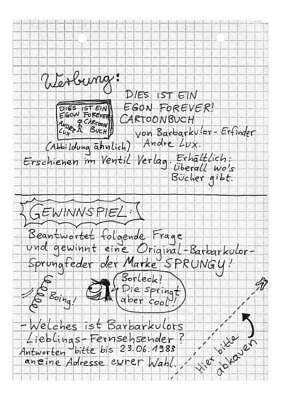 Werbung:
DIES IST EIN
EGON FOREVER!
CARTOONBUCH
DIES IST EIN
EGON FOREVER
CARTOON
BUCH
ANDRE
LUX
(Abbildung ähnlich)
von Barbarkulor-Erfinder
Andre Lux.
Erschienen im Ventil Verlag. Erhältlich:
überall wo's
Bücher gibt.
GEWINNSPIEL:
Beantwortet folgende Frage
und gewinnt eine Original-Barbarkulor-
Sprungfeder der Marke SPRUNGY!
Boing!
Borleck!
Die springt
aber cool!
-Welches ist Barbarkulors
Lieblings-Fernsehsender?
Antworten bitte bis 23.06.1983
an eine Adresse eurer Wahl.
Hier bitte
abkauen